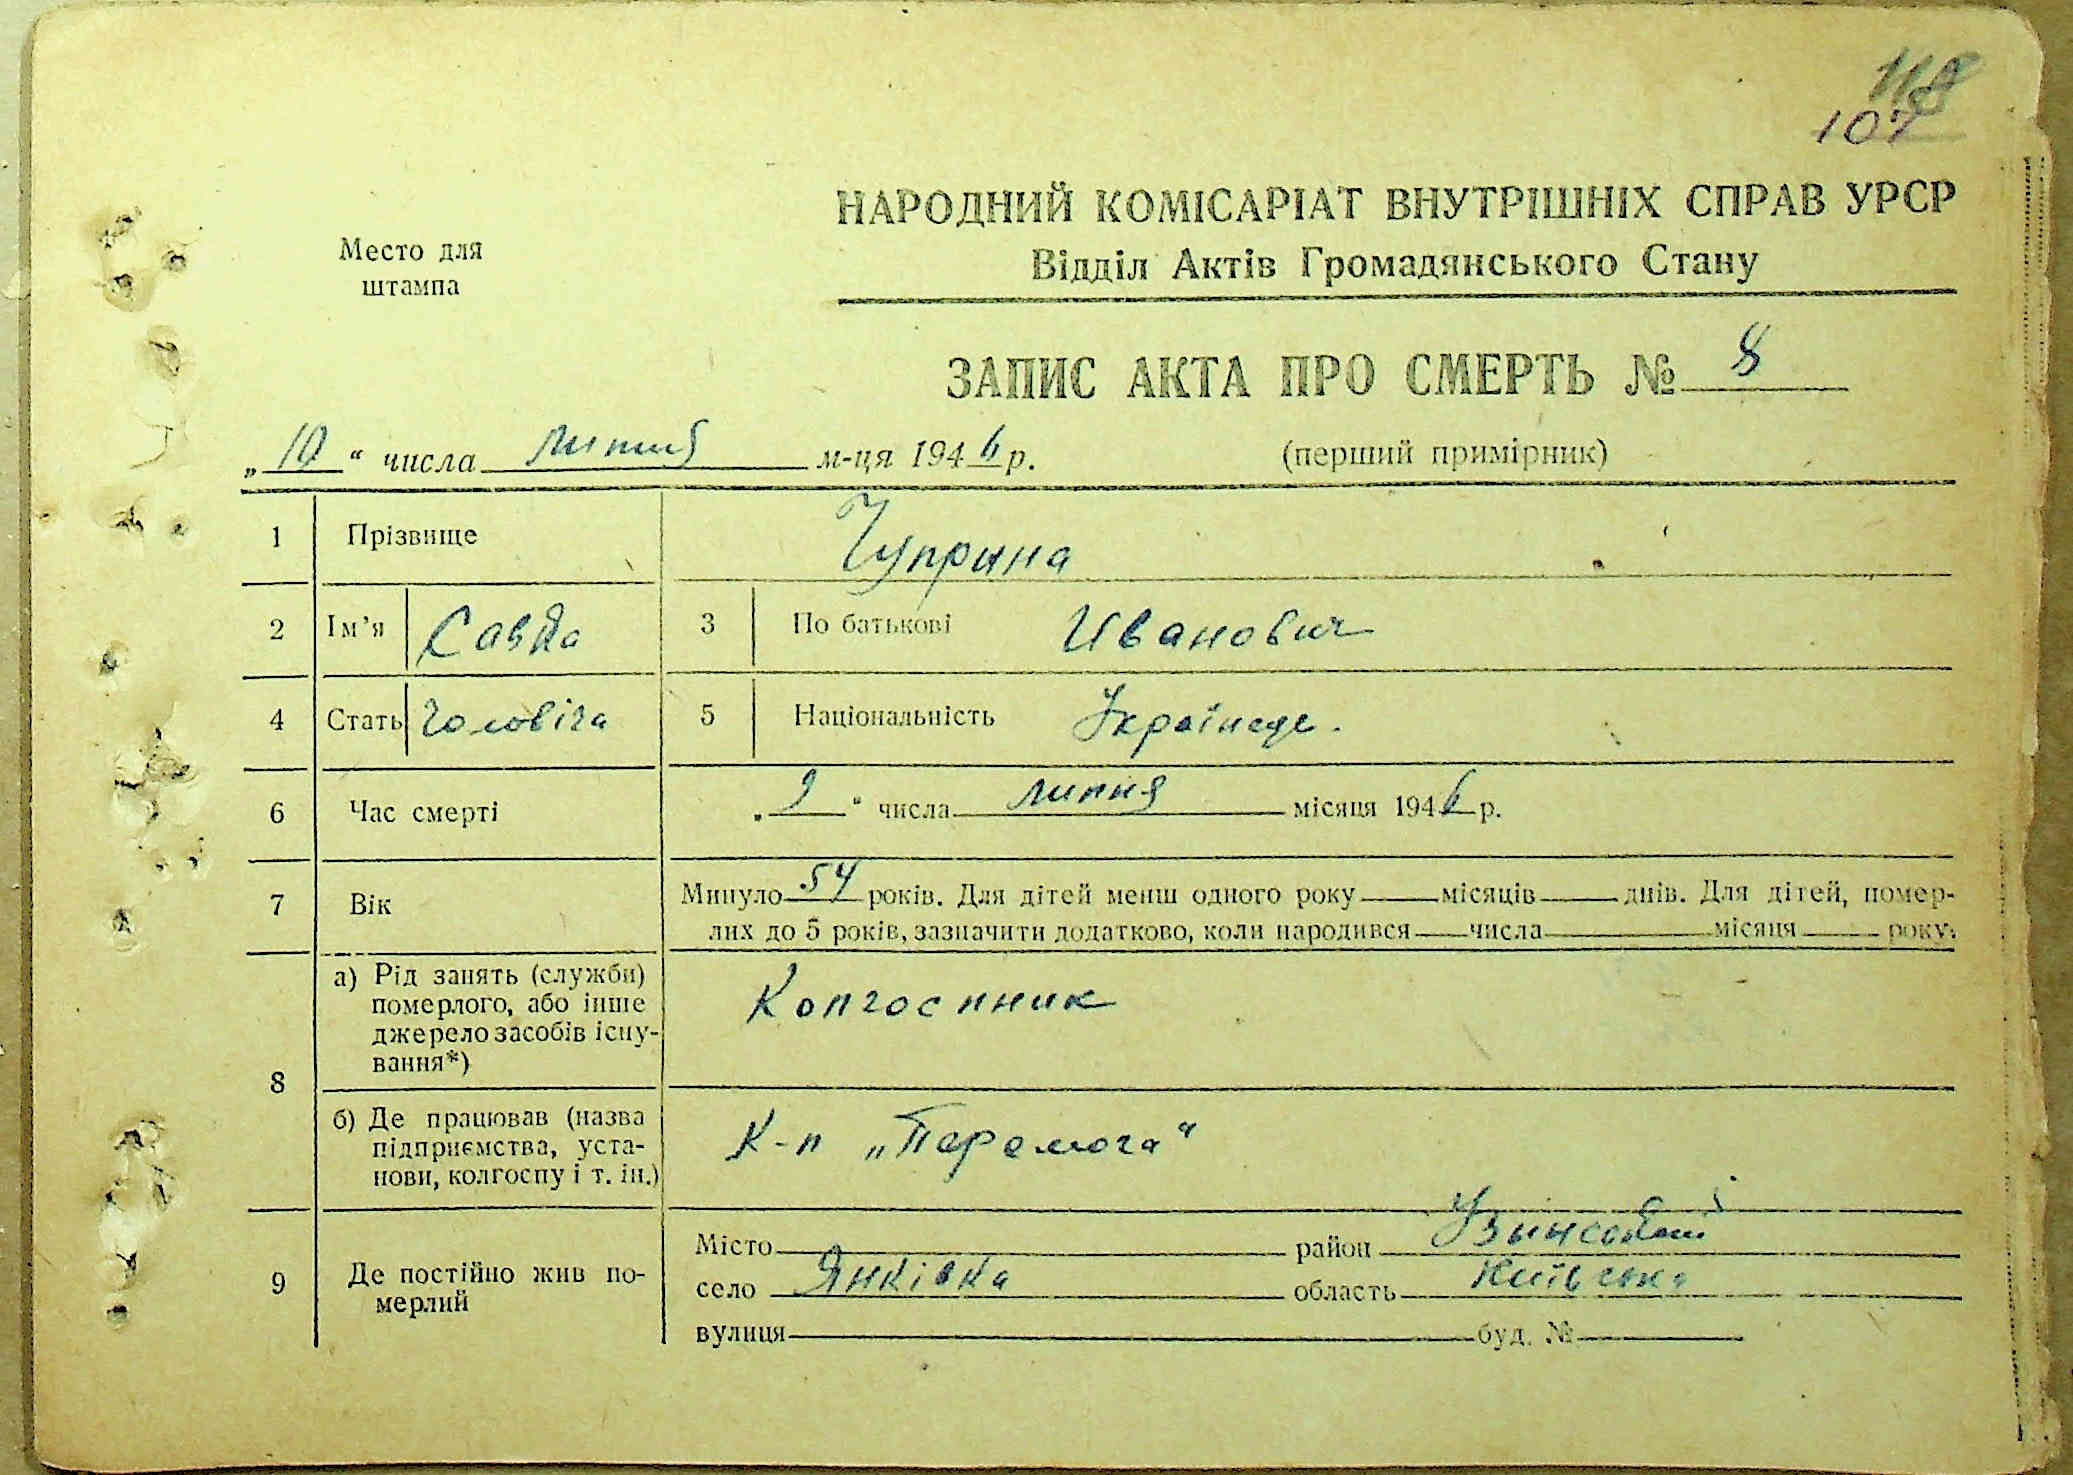 107
НАРОДНИЙ КОМІСАРІАТ ВНУТРІШНІХ СПРАВ УРСР
Место для
штампа
Відділ Актів Громадянського Стану
ЗАПИС АКТА ПРО СМЕРТЬ № 8
„ 10 “ числа липня м-ця 1946 р.
(перший примірник)
1 Прізвище Чуприна
2 Ім’я Савка 3 По батькові Иванович
4 Стать Чоловіча 5 Національність Українець.
6 Час смерті „ 9 “ числа липня місяця 1946 р.
7 Вік Минуло 54 років. Для дітей менш одного року місяців днів. Для дітей, помер-
лих до 5 років, зазначити додатково, коли народився числа місяця року.
8 а) Рід занять (служби)
померлого, або інше
джерело засобів існу-
вання*)
Колгоспник
б) Де працював (назва
підприємства, уста-
нови, колгоспу і т. ін.)
К-п „Перемога“
9 Де постійно жив по-
мерлий
Місто район Узинський
село Янківка область Київська
вулиця буд. №